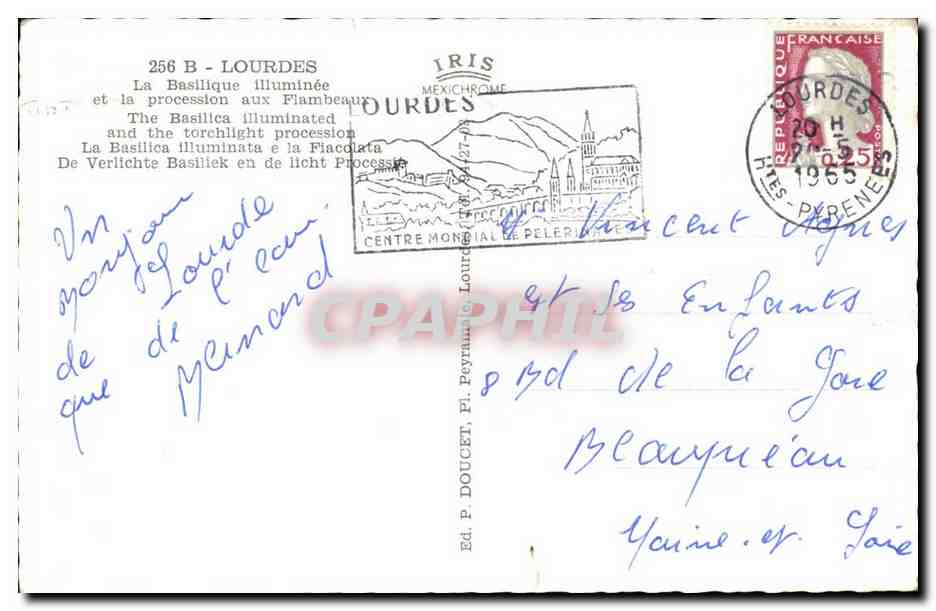 256 B - LOURDES
La Basilique illuminée
et la procession aux Flambeaux
The Basilica illuminated
and the torchlight procession
La Basilica illuminata e la Fiacolata
De Verlichte Basiliek en de licht Processie
IRIS
MEXICHROME
LOURDES
CENTRE MONDIAL DE PELERINAGE
REPUBLIQUE FRANCAISE
0,25
POSTES
LOURDES
20 H
1965
HTES-PYRENEES
Un
Bonjour
de Lourde
que de l'eau.
Menard
Ed. P. DOUCET, Pl. Peyramale, Lourdes
Vincent Agnes
et ses Enfants
8 Bd de la Gare
Beaupréau
Maine-et-Loire
CPAPHIL